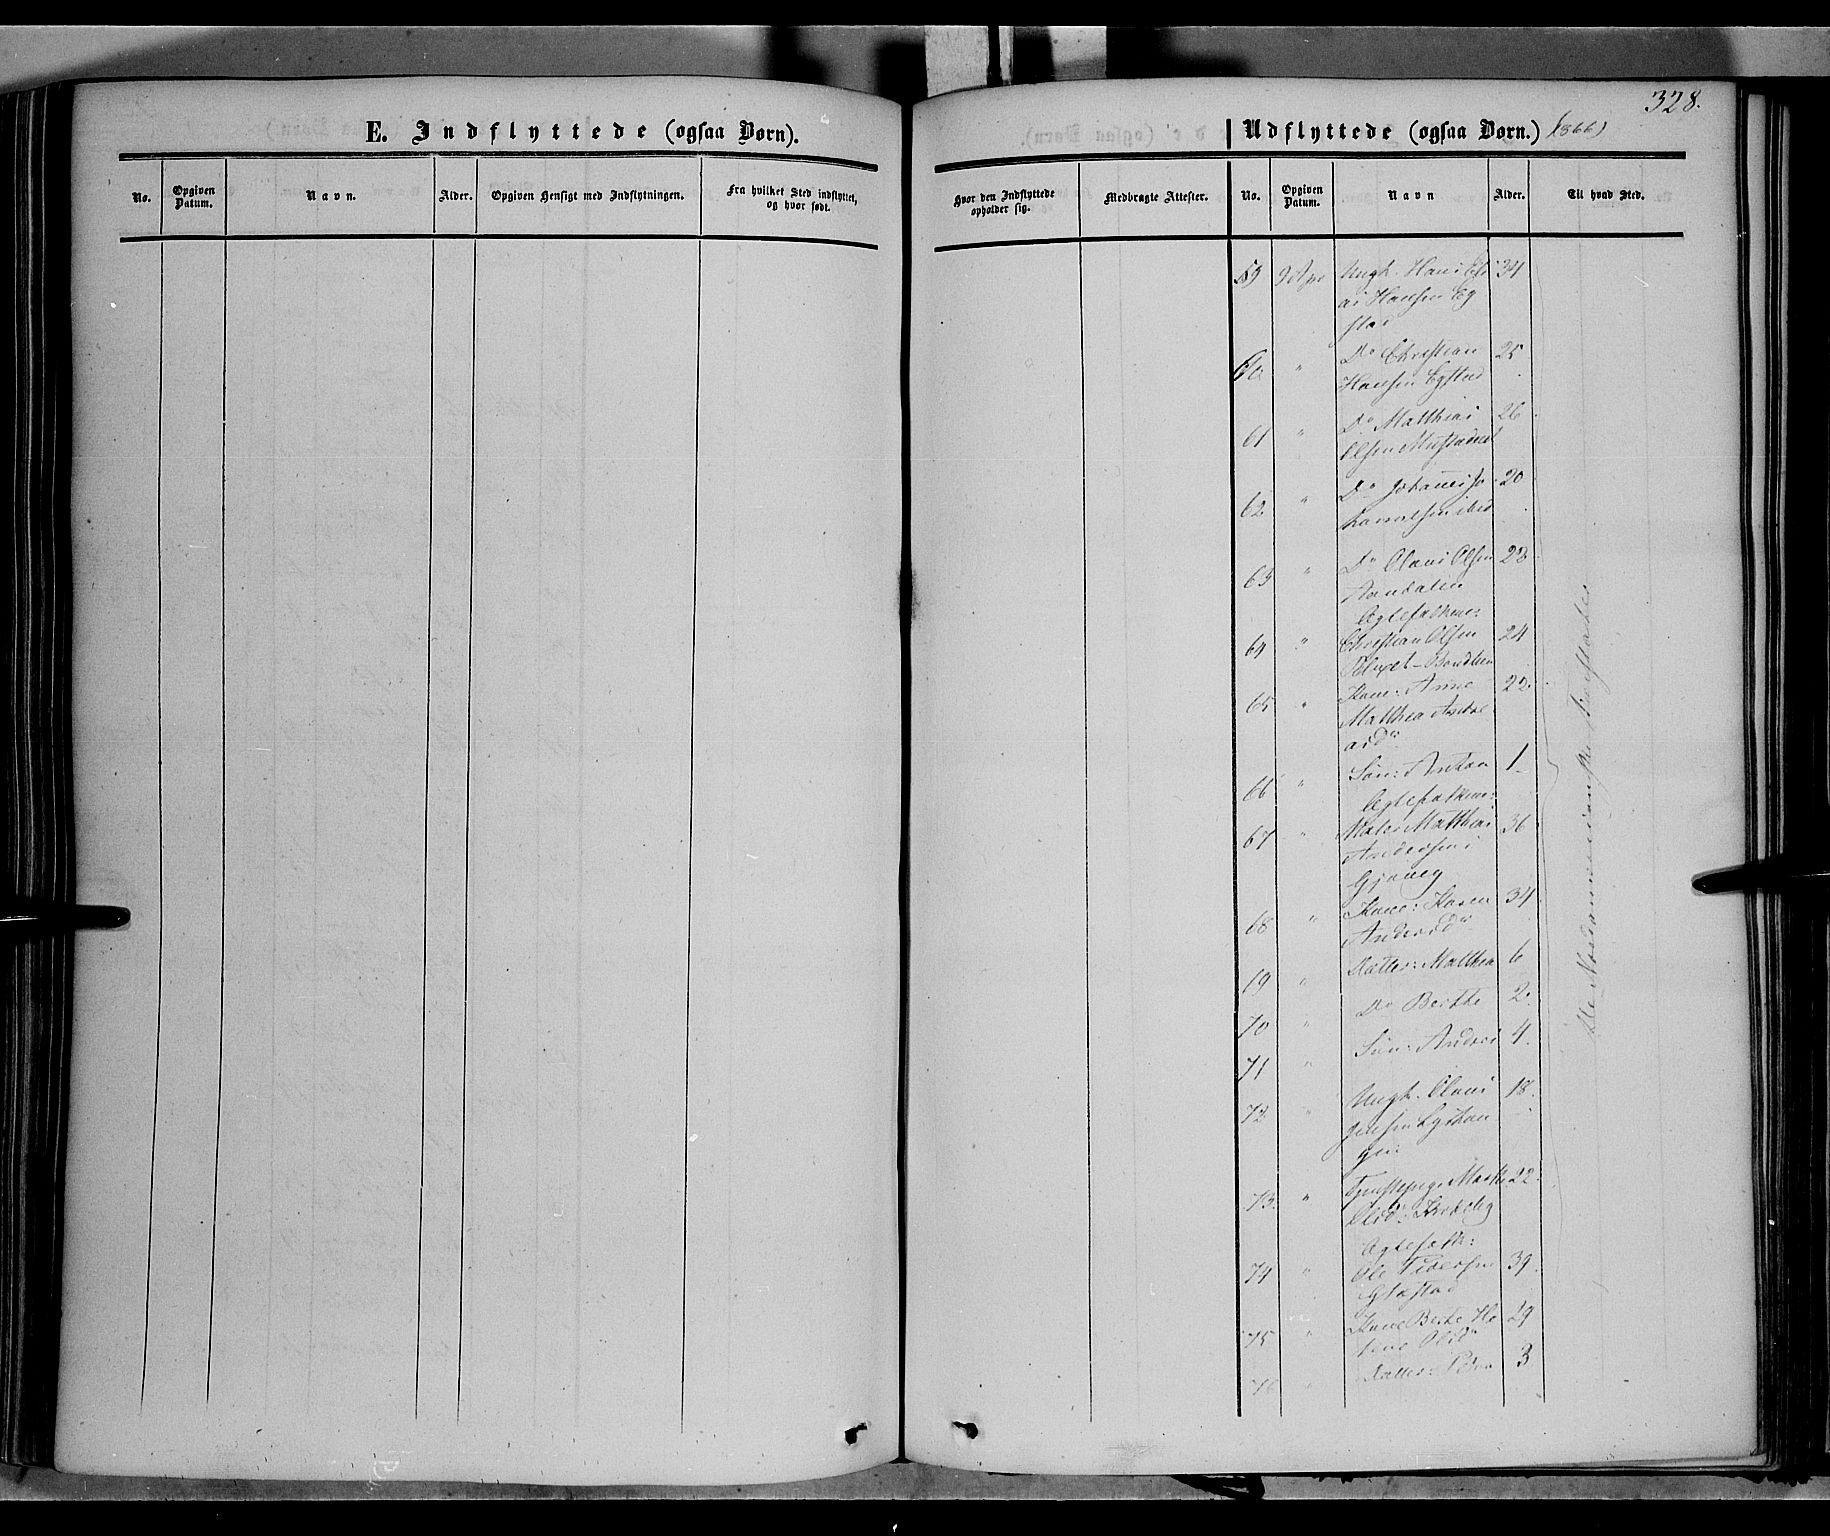 328.
E. Indflyttede (ogsaa Børn).
Udflyttede (ogsaa Børn.) (1866)
No.
Opgiven Datum.
Navn.
Alder.
Opgiven Hensigt med Indflytningen.
Fra hvilket Sted indflyttet, og hvor født.
Hvor den Indflyttede opholder sig.
Medbragte Attester.
No.
Opgiven Datum.
Navn
Alder.
Til hvad Sted.
59 9 Apr Ungk. Hans Eli 34
as Hansen Eg
stad
60 " Do Christian 25
Hansen Egstad
61 " Do Matthias 26
Olsen
62 " Do Johannes Jo 20
hannesen ibid
63 " Do Olaus Olsen 22
Aandalen
Ægtefolkene:
64 " Christian Olsen 24
65 " Kone: Anne 22
Matthea Andre
asdr
66 " Søn: Anton 1
Ægtefolkene:
67 " Maler Matthias 36
Andersen i
Gjøvig
68 " Kone: Karen 34
Andersdr
69 " Datter: Matthea 6
70 " Do Berthe 2
71 " Søn: Andreas 4
72 " Ungk. Olaus 18
Jensen
73 " Tjenestepige Marthe 22
Olsdr
Ægtefolk:
74 " Ole Pedersen 39
75 " Kone Berte He 29
lene Olsdr
76 " Datter: 3
De Nordamerikanske Fristater